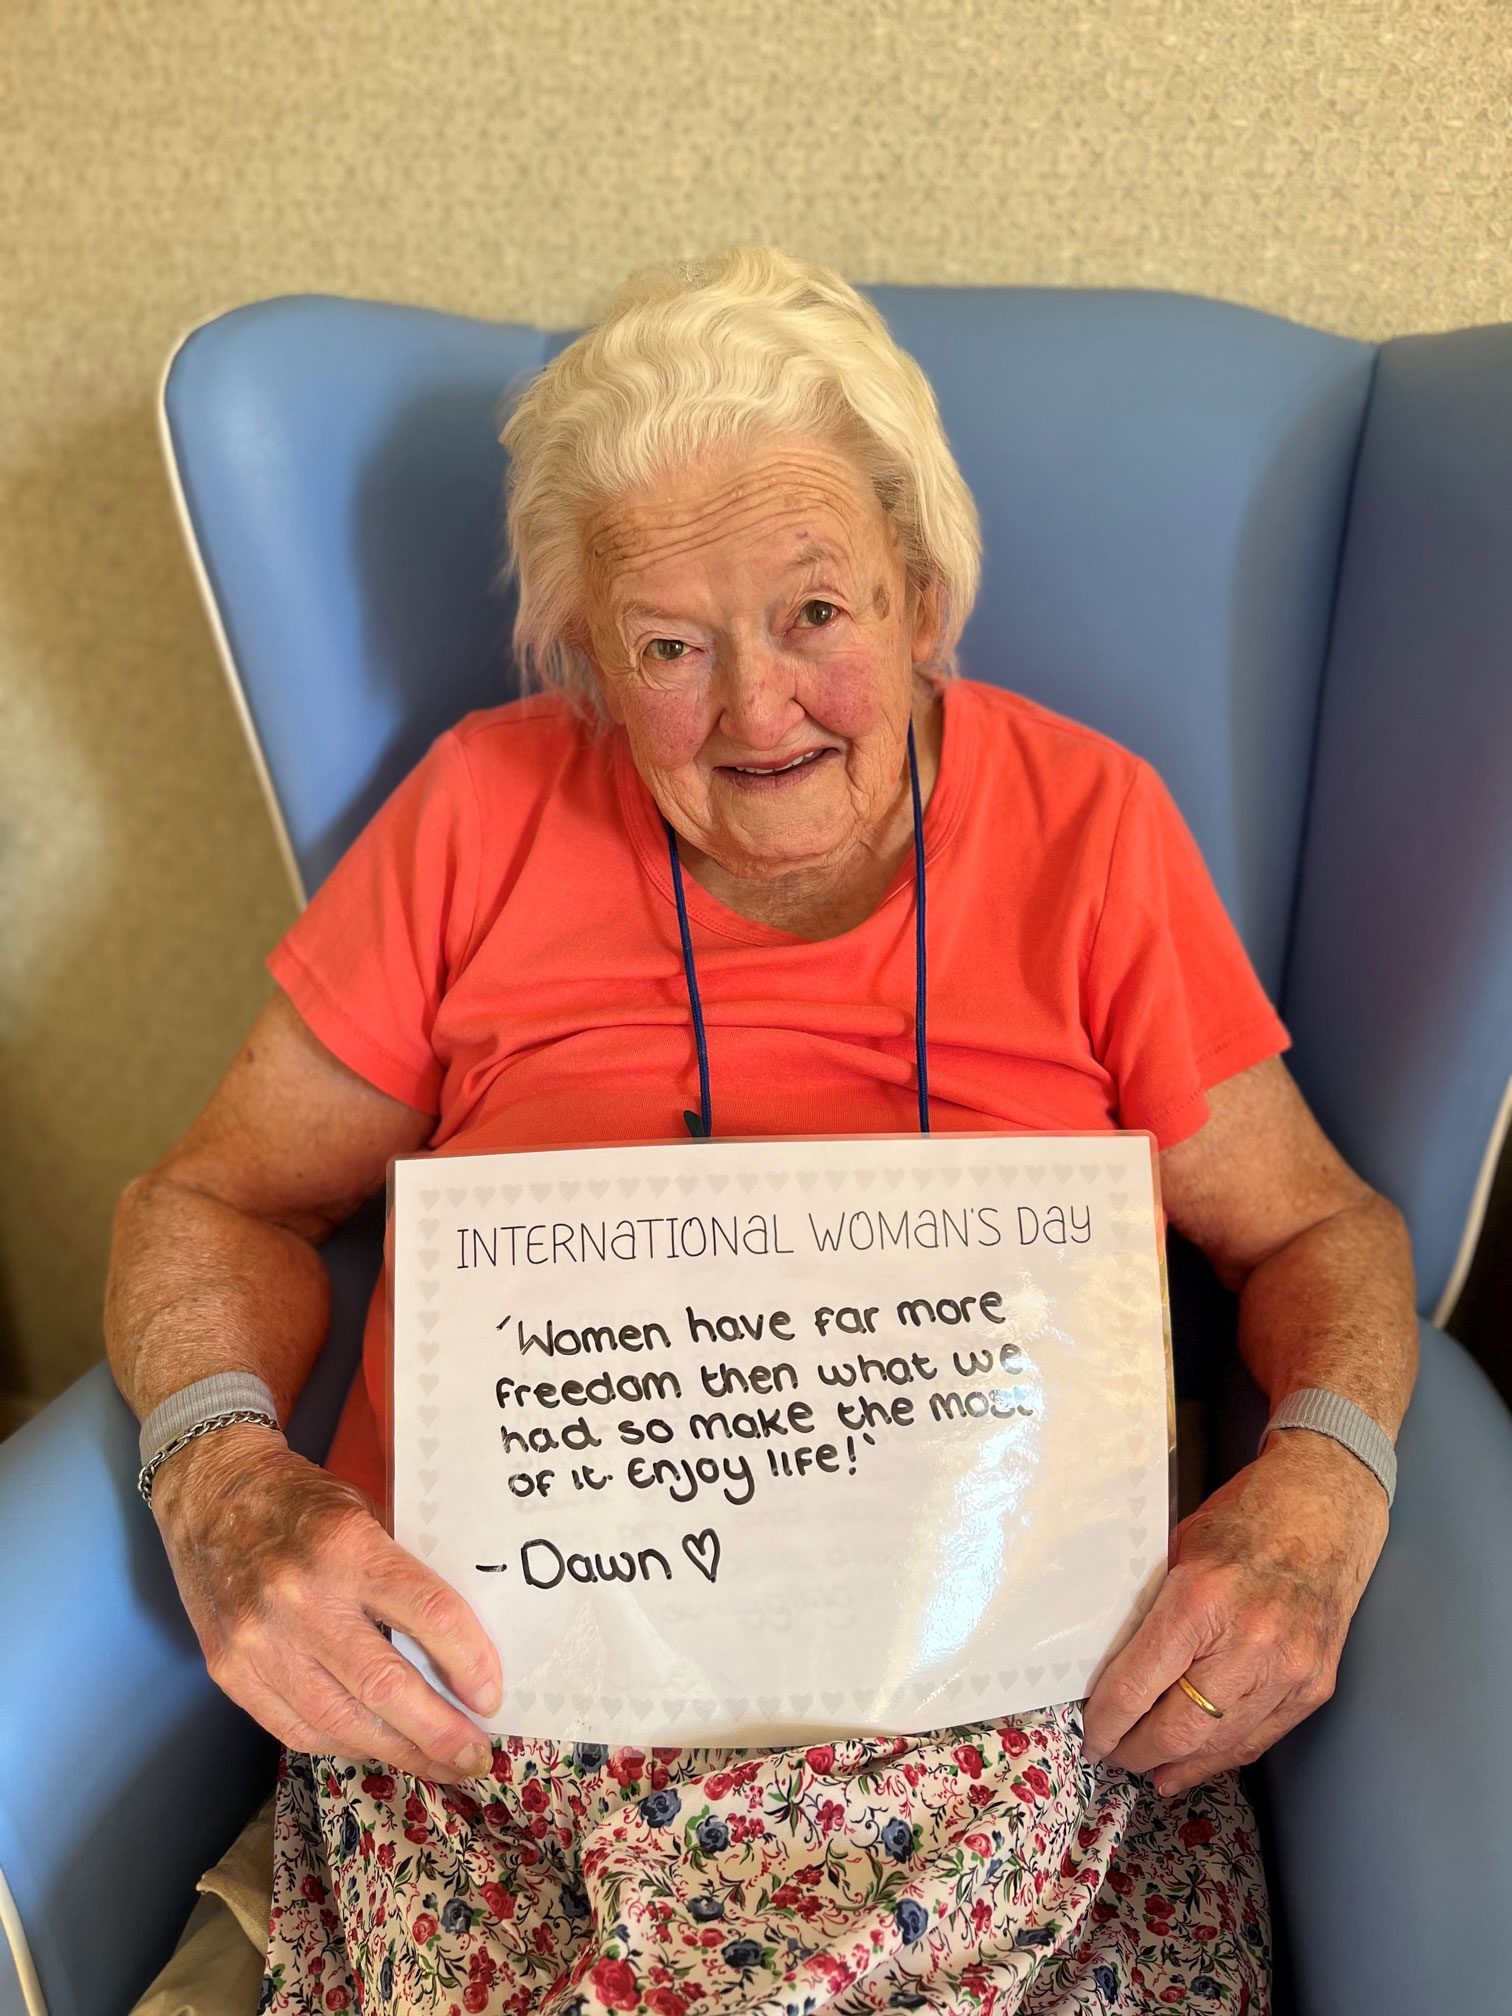 INTERNATIONAL WOMAN'S DAY
'Women have far more
freedom then what we
had so make the most
of it. Enjoy life!'
- Dawn ♡